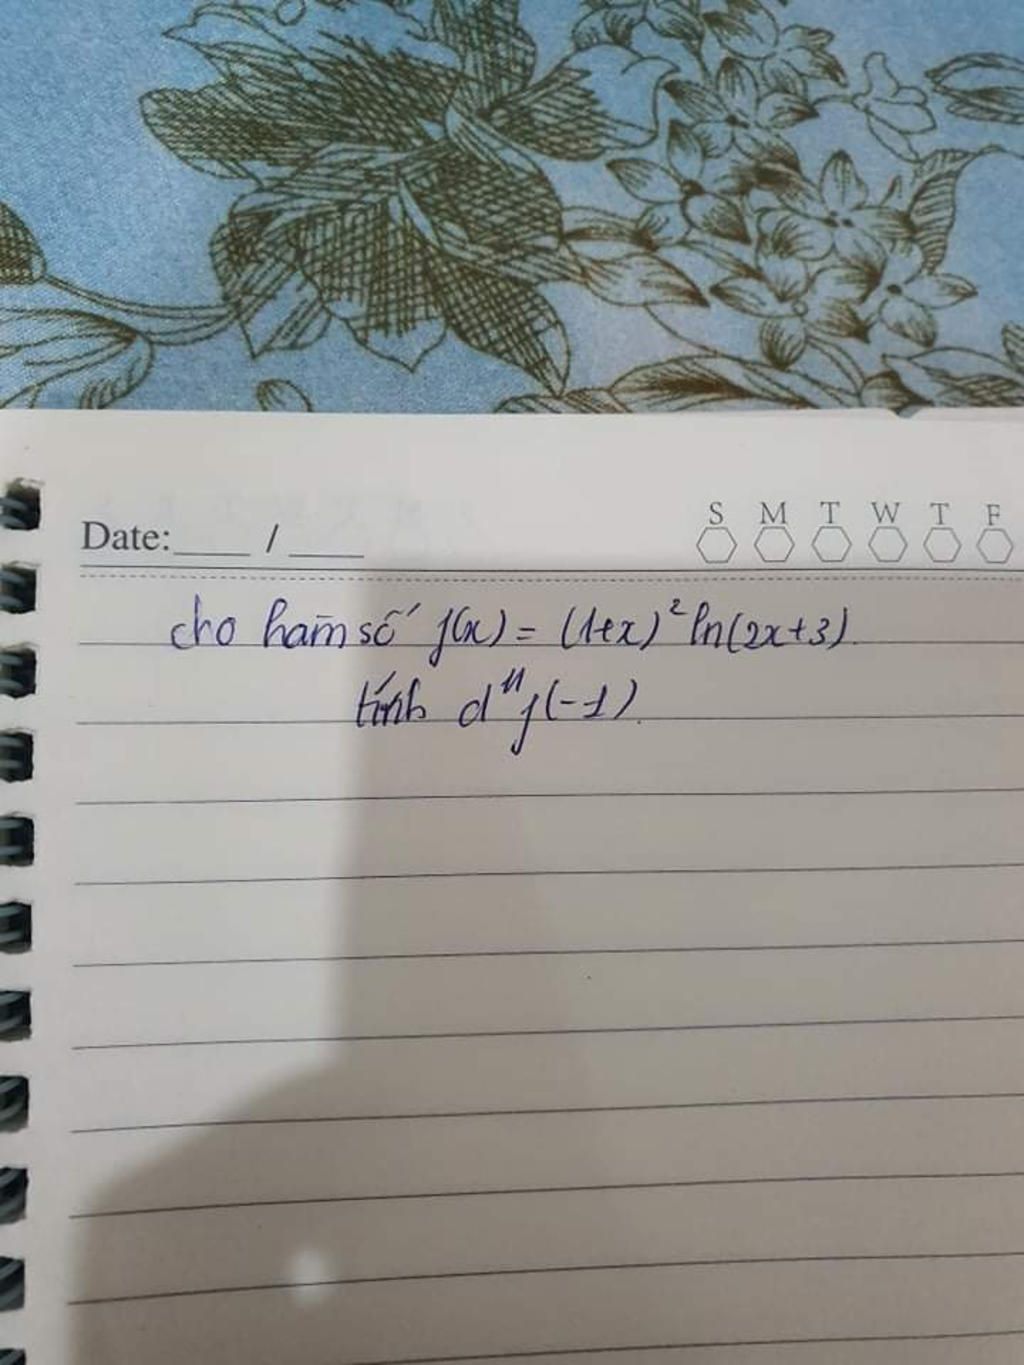 Date:____ / ____
S M T W T F
cho hàm số f(x) = (1+x)² ln(2x+3).
tính d¹¹f(-1).